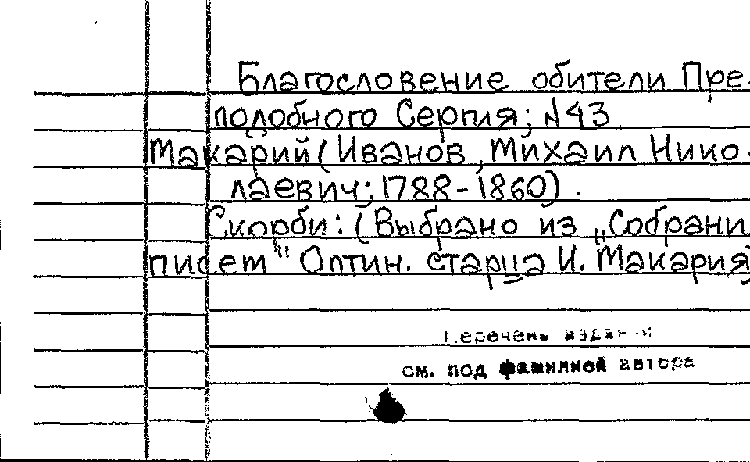 Благословение обители Пре-
подобного Сергия; №43
Макарий (Иванов, Михаил Нико-
лаевич; 1788-1860).
Скорби: (Выбрано из „Собрани
писем" Оптин. старца И. Макария)
Перечень изданий
см. под фамилией автора